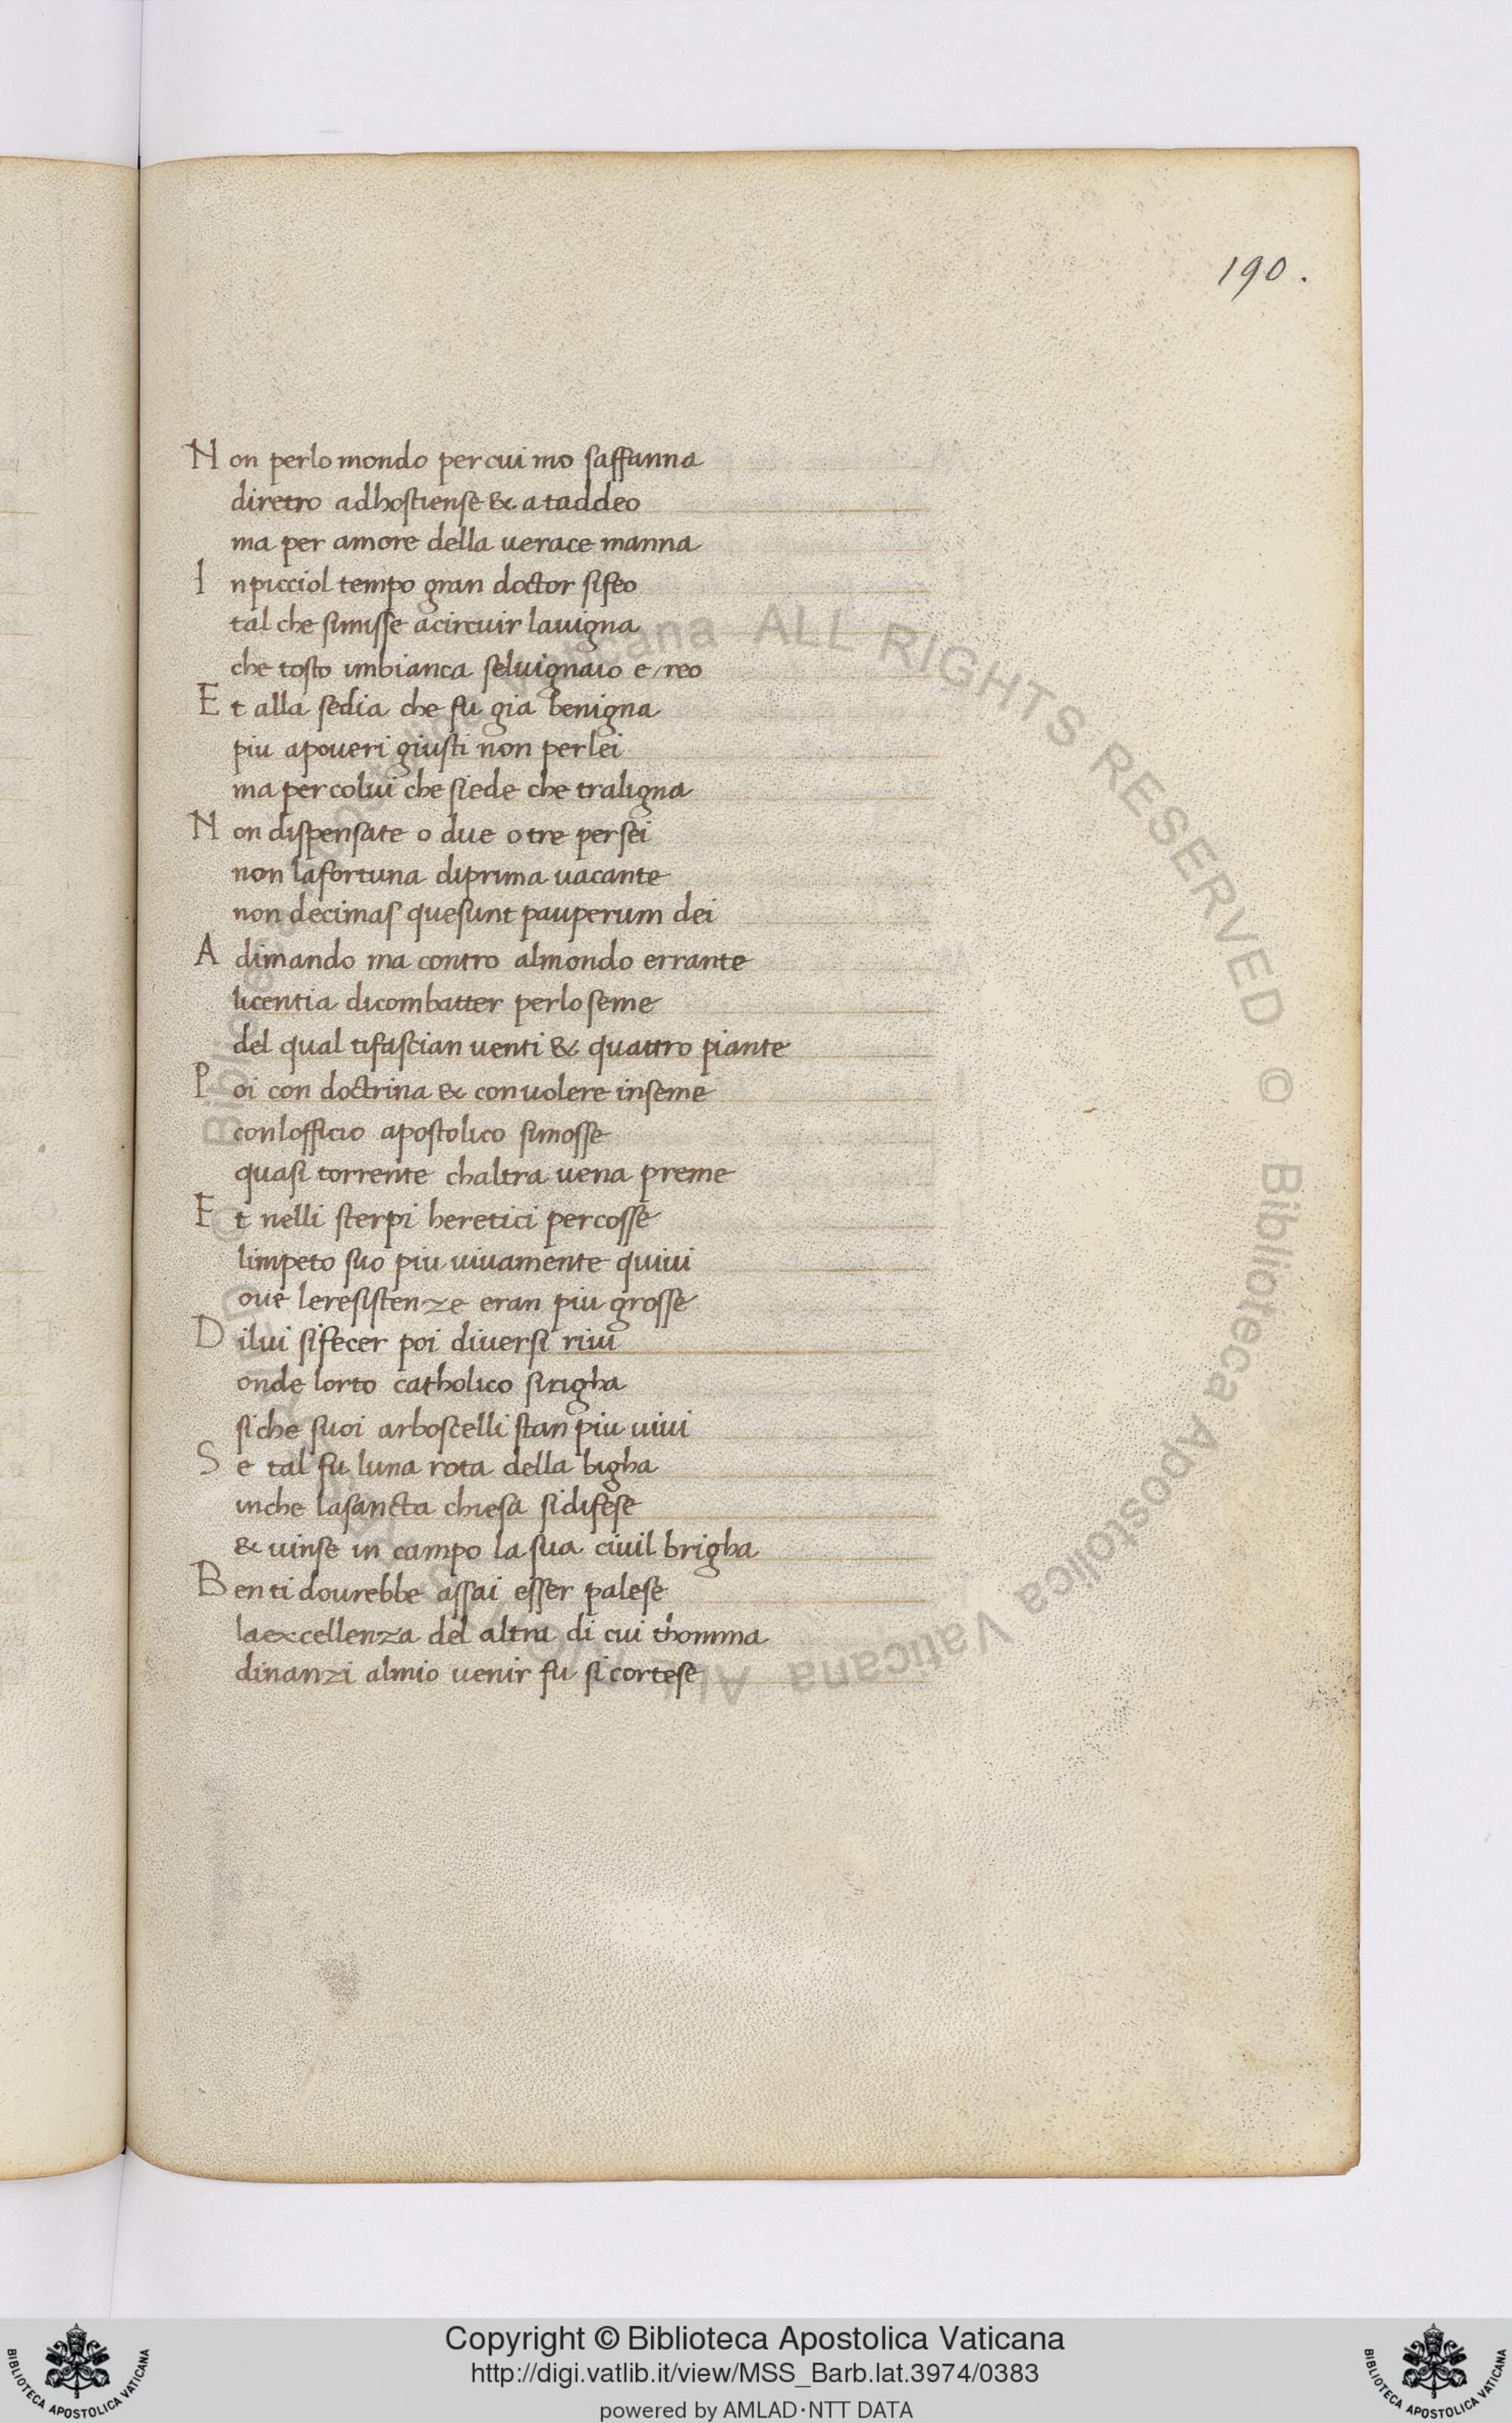 190.
N on perlo mondo per cui mo saffanna
diretro adhostiense & a taddeo
ma per amore della uerace manna
I npicciol tempo gran doctor sifeo
tal che simisse acircuir lauigna
che tosto imbianca seluignaio e reo
E t alla sedia che fu gia benigna
piu apoueri giusti non perlei
ma per colui che siede che traligna
N on dispensate o due o tre per sei
non lafortuna diprima uacante
non decimas quesunt pauperum dei
A dimando ma contro almondo errante
licentia dicombatter perlo seme
del qual tifascian uenti & quattro piante
P oi con doctrina & con uolere inseme
conlofficio apostolico simosse
quasi torrente chaltra uena preme
E t nelli sterpi heretici percosse
limpeto suo piu uiuamente quiui
oue leresistenze eran piu grosse
D ilui sifecer poi diuersi riui
onde lorto catholico sirigha
siche suoi arboscelli stan piu uiui
S e tal fu luna rota della bigha
inche lasancta chiesa sidifese
& uinse in campo la sua ciuil brigha
B enti dourebbe assai esser palese
laexcellenza del altra di cui thomma
dinanzi almio uenir fu si cortese
© Biblioteca Apostolica Vaticana ALL RIGHTS RESERVED © Biblioteca Apostolica Vaticana
Copyright © Biblioteca Apostolica Vaticana
http://digi.vatlib.it/view/MSS_Barb.lat.3974/0383
powered by AMLAD·NTT DATA
BIBLIOTECA APOSTOLICA VATICANA
BIBLIOTECA APOSTOLICA VATICANA